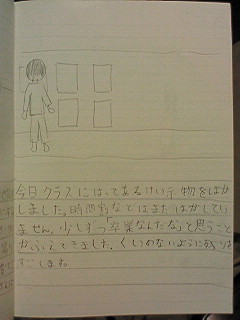 今日クラスにはってあるけい示物をはが
しました。時間割などはまだはがしてい
ません。少しずつ「卒業なんだな」と思うこと
がふえてきました。くいのないように残りを
すごします。